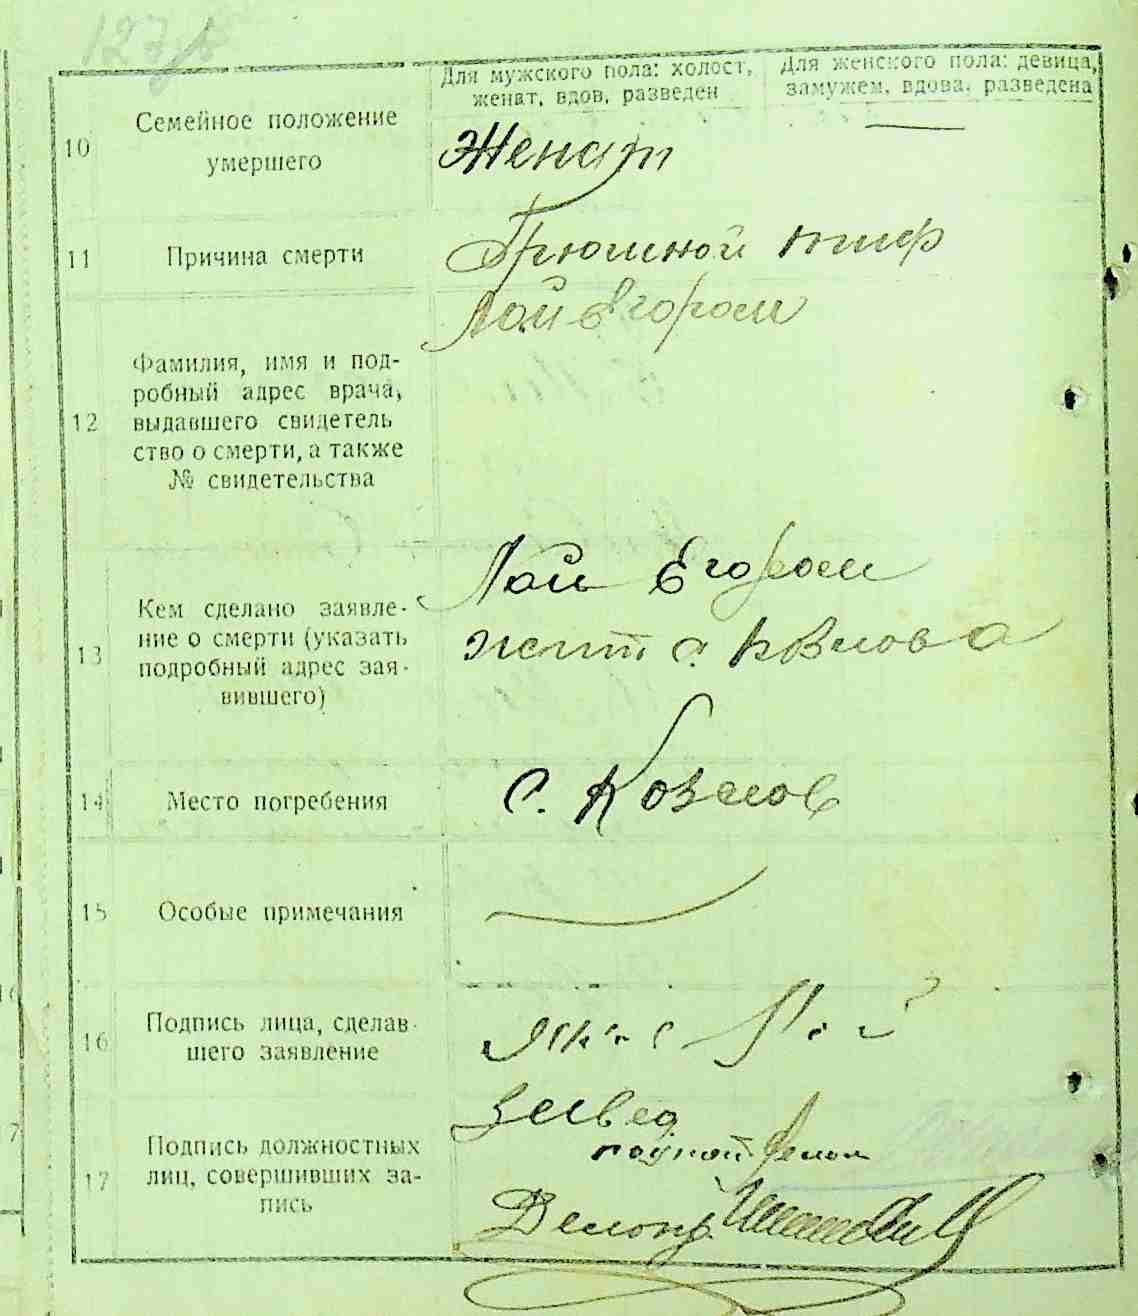 Для мужского пола: холост,
женат, вдов, разведен
Для женского пола: девица,
замужем, вдова, разведена
10
Семейное положение
умершего
Женат
11
Причина смерти
Брюшной тиф
Лай Егором
12
Фамилия, имя и под-
робный адрес врача,
выдавшего свидетель
ство о смерти, а также
№ свидетельства
13
Кем сделано заявле-
ние о смерти (указать
подробный адрес зая-
вившего)
Лай Егором
жит с. Козлова
14
Место погребения
с. Козлов
15
Особые примечания
16
Подпись лица, сделав-
шего заявление
17
Подпись должностных
лиц, совершивших за-
пись
Делопр.